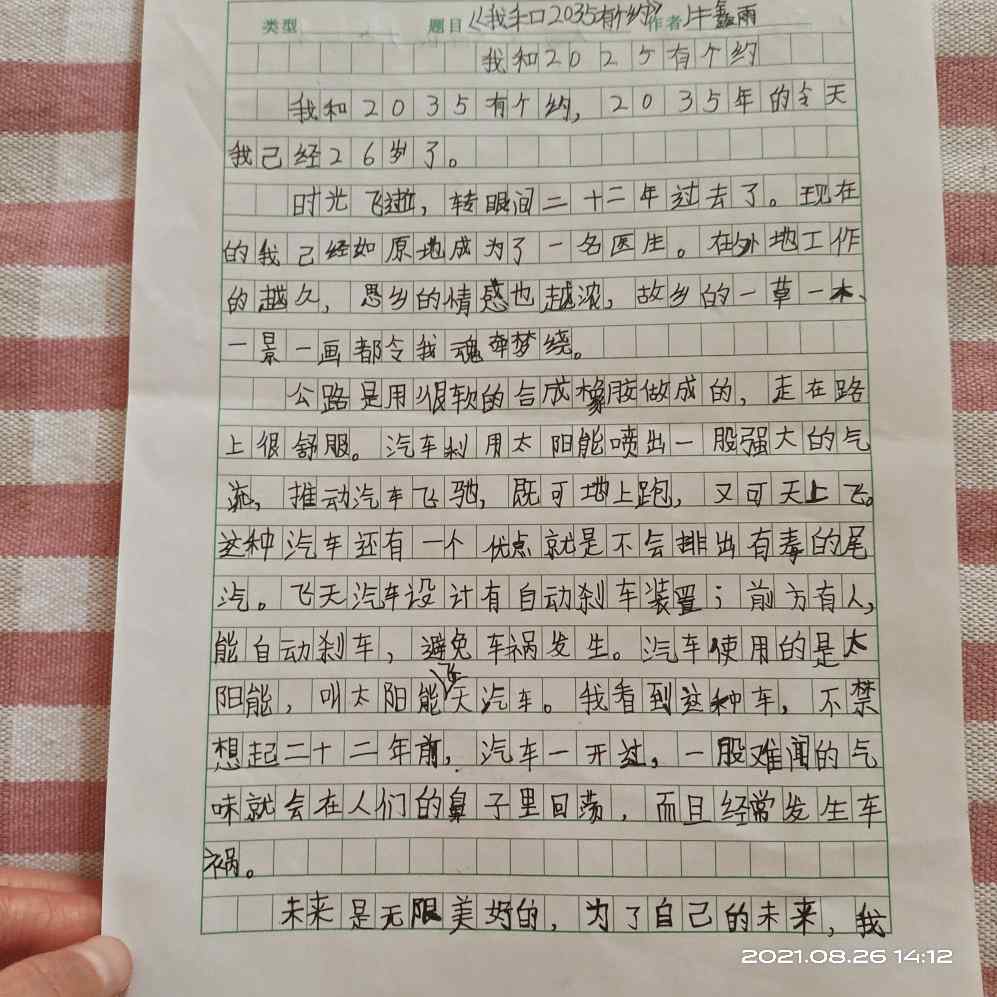 类型 题目《我和2035有个约》作者 牛鑫雨
我和2025有个约
我和2035有个约，2035年的今天
我己经26岁了。
时光飞逝，转眼间二十二年过去了。现在
的我己经如原地成为了一名医生。在外地工作
的越久，思乡的情感也越浓，故乡的一草一木、
一景一画都令我魂牵梦绕。
公路是用很软的合成橡胶做成的，走在路
上很舒服。汽车利用太阳能喷出一股强大的气
流，推动汽车飞驰，既可地上跑，又可天上飞。
这种汽车还有一个优点就是不会排出有毒的尾
汽。飞天汽车设计有自动刹车装置；前方有人，
能自动刹车，避免车祸发生。汽车使用的是太
阳能，叫太阳能飞天汽车。我看到这种车，不禁
想起二十二年前，汽车一开过，一股难闻的气
味就会在人们的鼻子里回荡，而且经常发生车
祸。
未来是无限美好的，为了自己的未来，我
2021.08.26 14:12